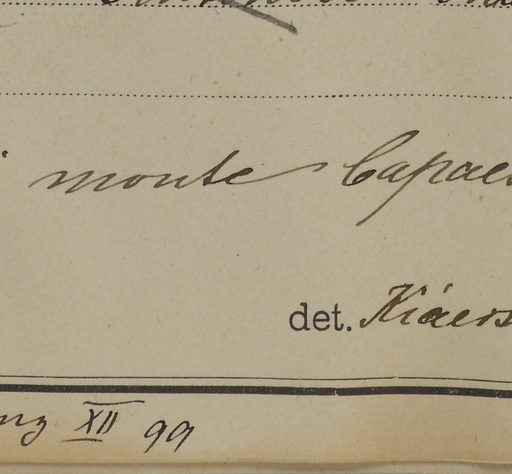 monte Capae
det. Kiáers
XII 99